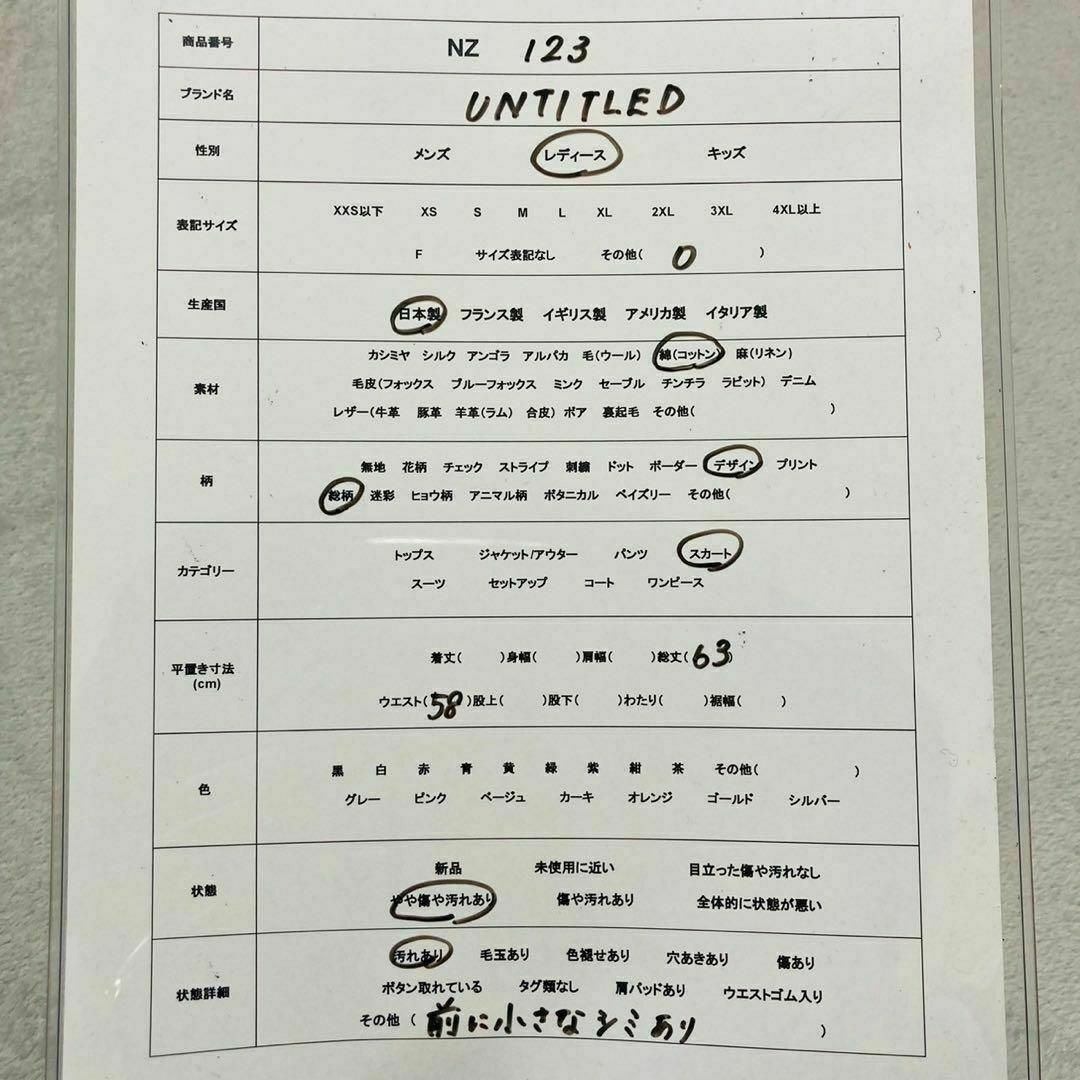 商品番号 NZ 123
ブランド名 UNTITLED
性別 メンズ レディース キッズ
XXS以下 XS S M L XL 2XL 3XL 4XL以上
表記サイズ
F サイズ表記なし その他( 0 )
生産国 日本製 フランス製 イギリス製 アメリカ製 イタリア製
カシミヤ シルク アンゴラ アルパカ 毛(ウール) 綿(コットン) 麻(リネン)
素材 毛皮(フォックス ブルーフォックス ミンク セーブル チンチラ ラビット) デニム
レザー(牛革 豚革 羊革(ラム) 合皮) ボア 裏起毛 その他( )
無地 花柄 チェック ストライプ 刺繍 ドット ボーダー デザイン プリント
柄
総柄 迷彩 ヒョウ柄 アニマル柄 ボタニカル ペイズリー その他( )
トップス ジャケット/アウター パンツ スカート
カテゴリー
スーツ セットアップ コート ワンピース
着丈( )身幅( )肩幅( )総丈( 63 )
平置き寸法
(cm)
ウエスト( 58 )股上( )股下( )わたり( )裾幅( )
黒 白 赤 青 黄 緑 紫 紺 茶 その他( )
色
グレー ピンク ベージュ カーキ オレンジ ゴールド シルバー
新品 未使用に近い 目立った傷や汚れなし
状態
やや傷や汚れあり 傷や汚れあり 全体的に状態が悪い
汚れあり 毛玉あり 色褪せあり 穴あきあり 傷あり
状態詳細 ボタン取れている タグ類なし 肩パッドあり ウエストゴム入り
その他 ( 前に小さなシミあり )